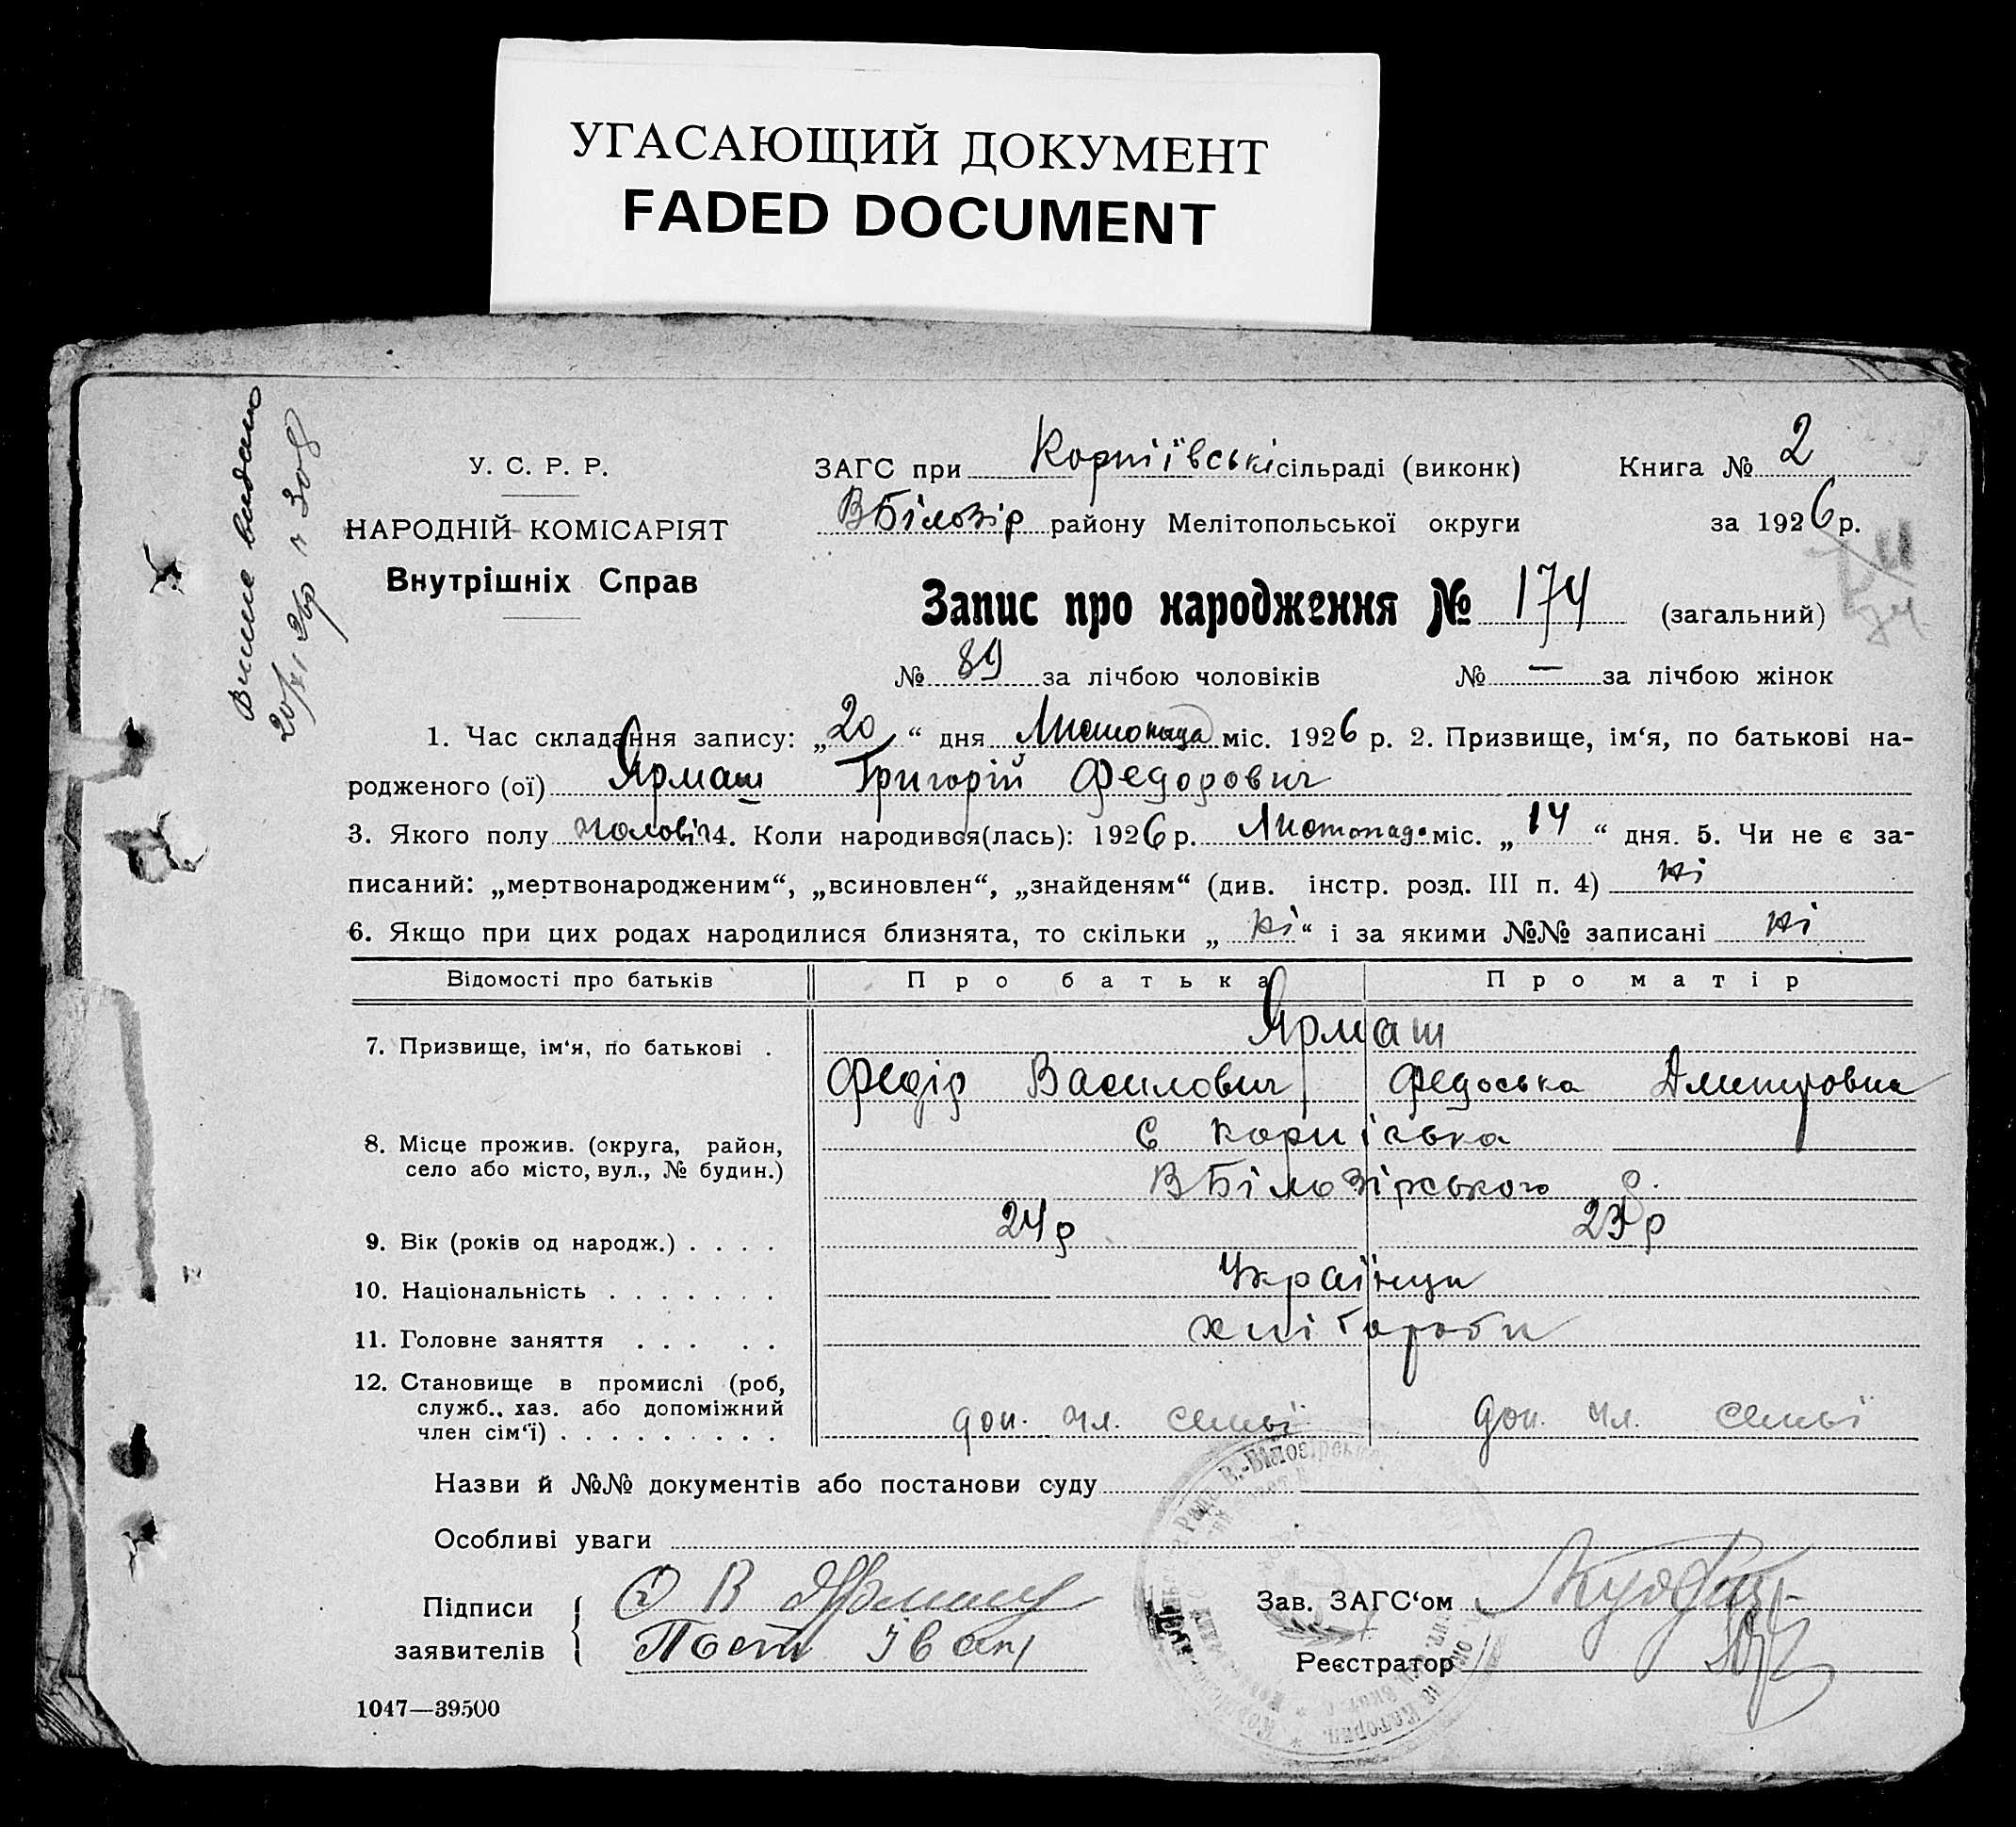 УГАСАЮЩИЙ ДОКУМЕНТ
FADED DOCUMENT
У. С. Р. Р.
НАРОДНІЙ КОМІСАРІЯТ
Внутрішніх Справ
ЗАГС при Корніївські сільраді (виконк) Книга № 2
ВБілозір району Мелітопольської округи за 1926 р.
Запис про народження № 174 (загальний)
№ 89 за лічбою чоловіків № — за лічбою жінок
1. Час складання запису: „20“ дня Листопада міс. 1926 р. 2. Призвище, ім‘я, по батькові на-
родженого (ої) Ярмаш Григорій Федорович
3. Якого полу чоловіч 4. Коли народився(лась): 1926 р. Листопада міс. „14“ дня. 5. Чи не є за-
писаний: „мертвонародженим“, „всиновлен“, „знайденям“ (див. інстр. розд. III п. 4) ні
6. Якщо при цих родах народилися близнята, то скільки „ні“ і за якими №№ записані ні
Відомості про батьків Про батька Про матір
7. Призвище, ім‘я, по батькові . Ярмаш
Федір Василович Федоська Дмитровна
8. Місце прожив. (округа, район,
село або місто, вул., № будин.)
ВБілозірського р.
9. Вік (років од народж.) . . . . 24 р 23 р
10. Національність . . . . . . . Українци
11. Головне заняття . . . . . хлібороби
12. Становище в промислі (роб,
служб., хаз. або допоміжний
член сім‘ї) . . . . . . . . . доп. чл. семьї доп. чл. семьї
Назви й №№ документів або постанови суду
Особливі уваги
Підписи
заявителів
Іван
Зав. ЗАГС‘ом
Реєстратор
1047—39500